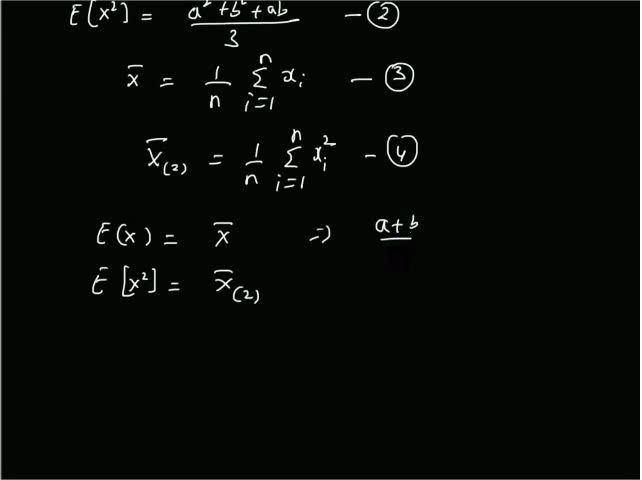 E[x²] = a² + b² + ab / 3 — ②
x̄ = 1/n Σ_{i=1}^{n} x_i — ③
x̄_(2) = 1/n Σ_{i=1}^{n} x_i² — ④
E(x) = x̄ ⇒ a + b
E[x²] = x̄_(2)